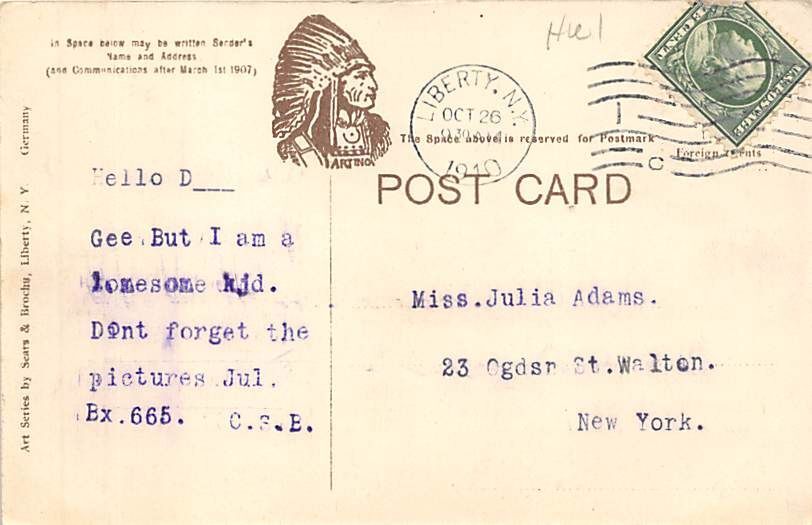 In Space below may be written Sender's
Name and Address
(and Communications after March 1st 1907)
LIBERTY, N.Y.
OCT 26
1910
The Space above is reserved for Postmark
ARTINO
POST CARD
Art Series by Sears & Brochu, Liberty, N Y Germany
Hello D___
Gee.But I am a
lonesome kid.
Dont forget the
pictures Jul.
Bx.665. C.S.B.
Miss.Julia Adams.
23 Ogdsn St.Walton.
New York.